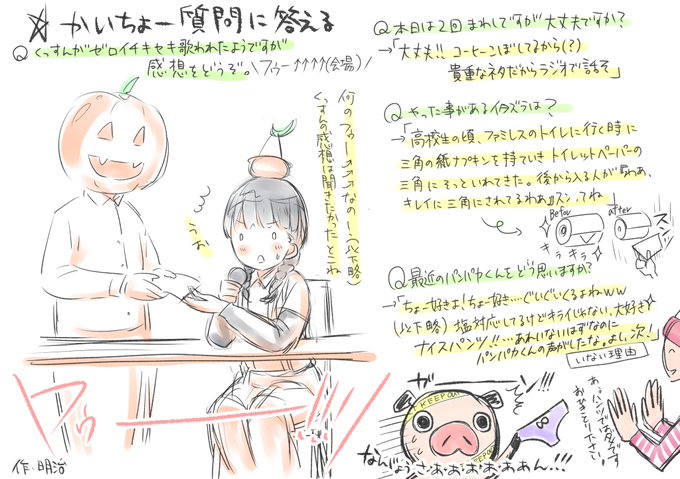 ☆ かいちょー質問に答える
Q くっすんがゼロイチキセキ歌われたようですが
感想をどうぞ。\フゥー↑↑↑↑(会場)/
何のフゥー↗↗↗なのー(以下略)
くっすんの感想は聞きたかったよこれ
うお
フゥーーー!!
作・明治
Q 本日は2回まわしですが大丈夫ですか?
→「大丈夫!! コーヒーこぼしてるから(?)
貴重なネタだからラジオで話そ」
Q やった事があるイタズラは?
→「高校生の頃、ファミレスのトイレに行く時に
三角の紙ナプキンを持ていきトイレットペーパーの
三角にそっといれてきた。後から入る人が『わあ、
キレイに三角にされてるわあ』スン、てね」
Befor
キラ キラ
after
スン
Q 最近のパンパカくんをどう思いますか?
→「ちょー好きよ!ちょー好き…ぐいぐいくるよねww
(以下略) 塩対応してるけどキライじゃない、大好き
ナイスパンツ!!…あれいないはずなのに
パンパカくんの声がしたな。よし、次!」
いない理由
ガーン!!!
KEEP OUT
なんじょうさぁぁぁぁぁぁん…!!!
あ、パンツではダメです
おひきとりください